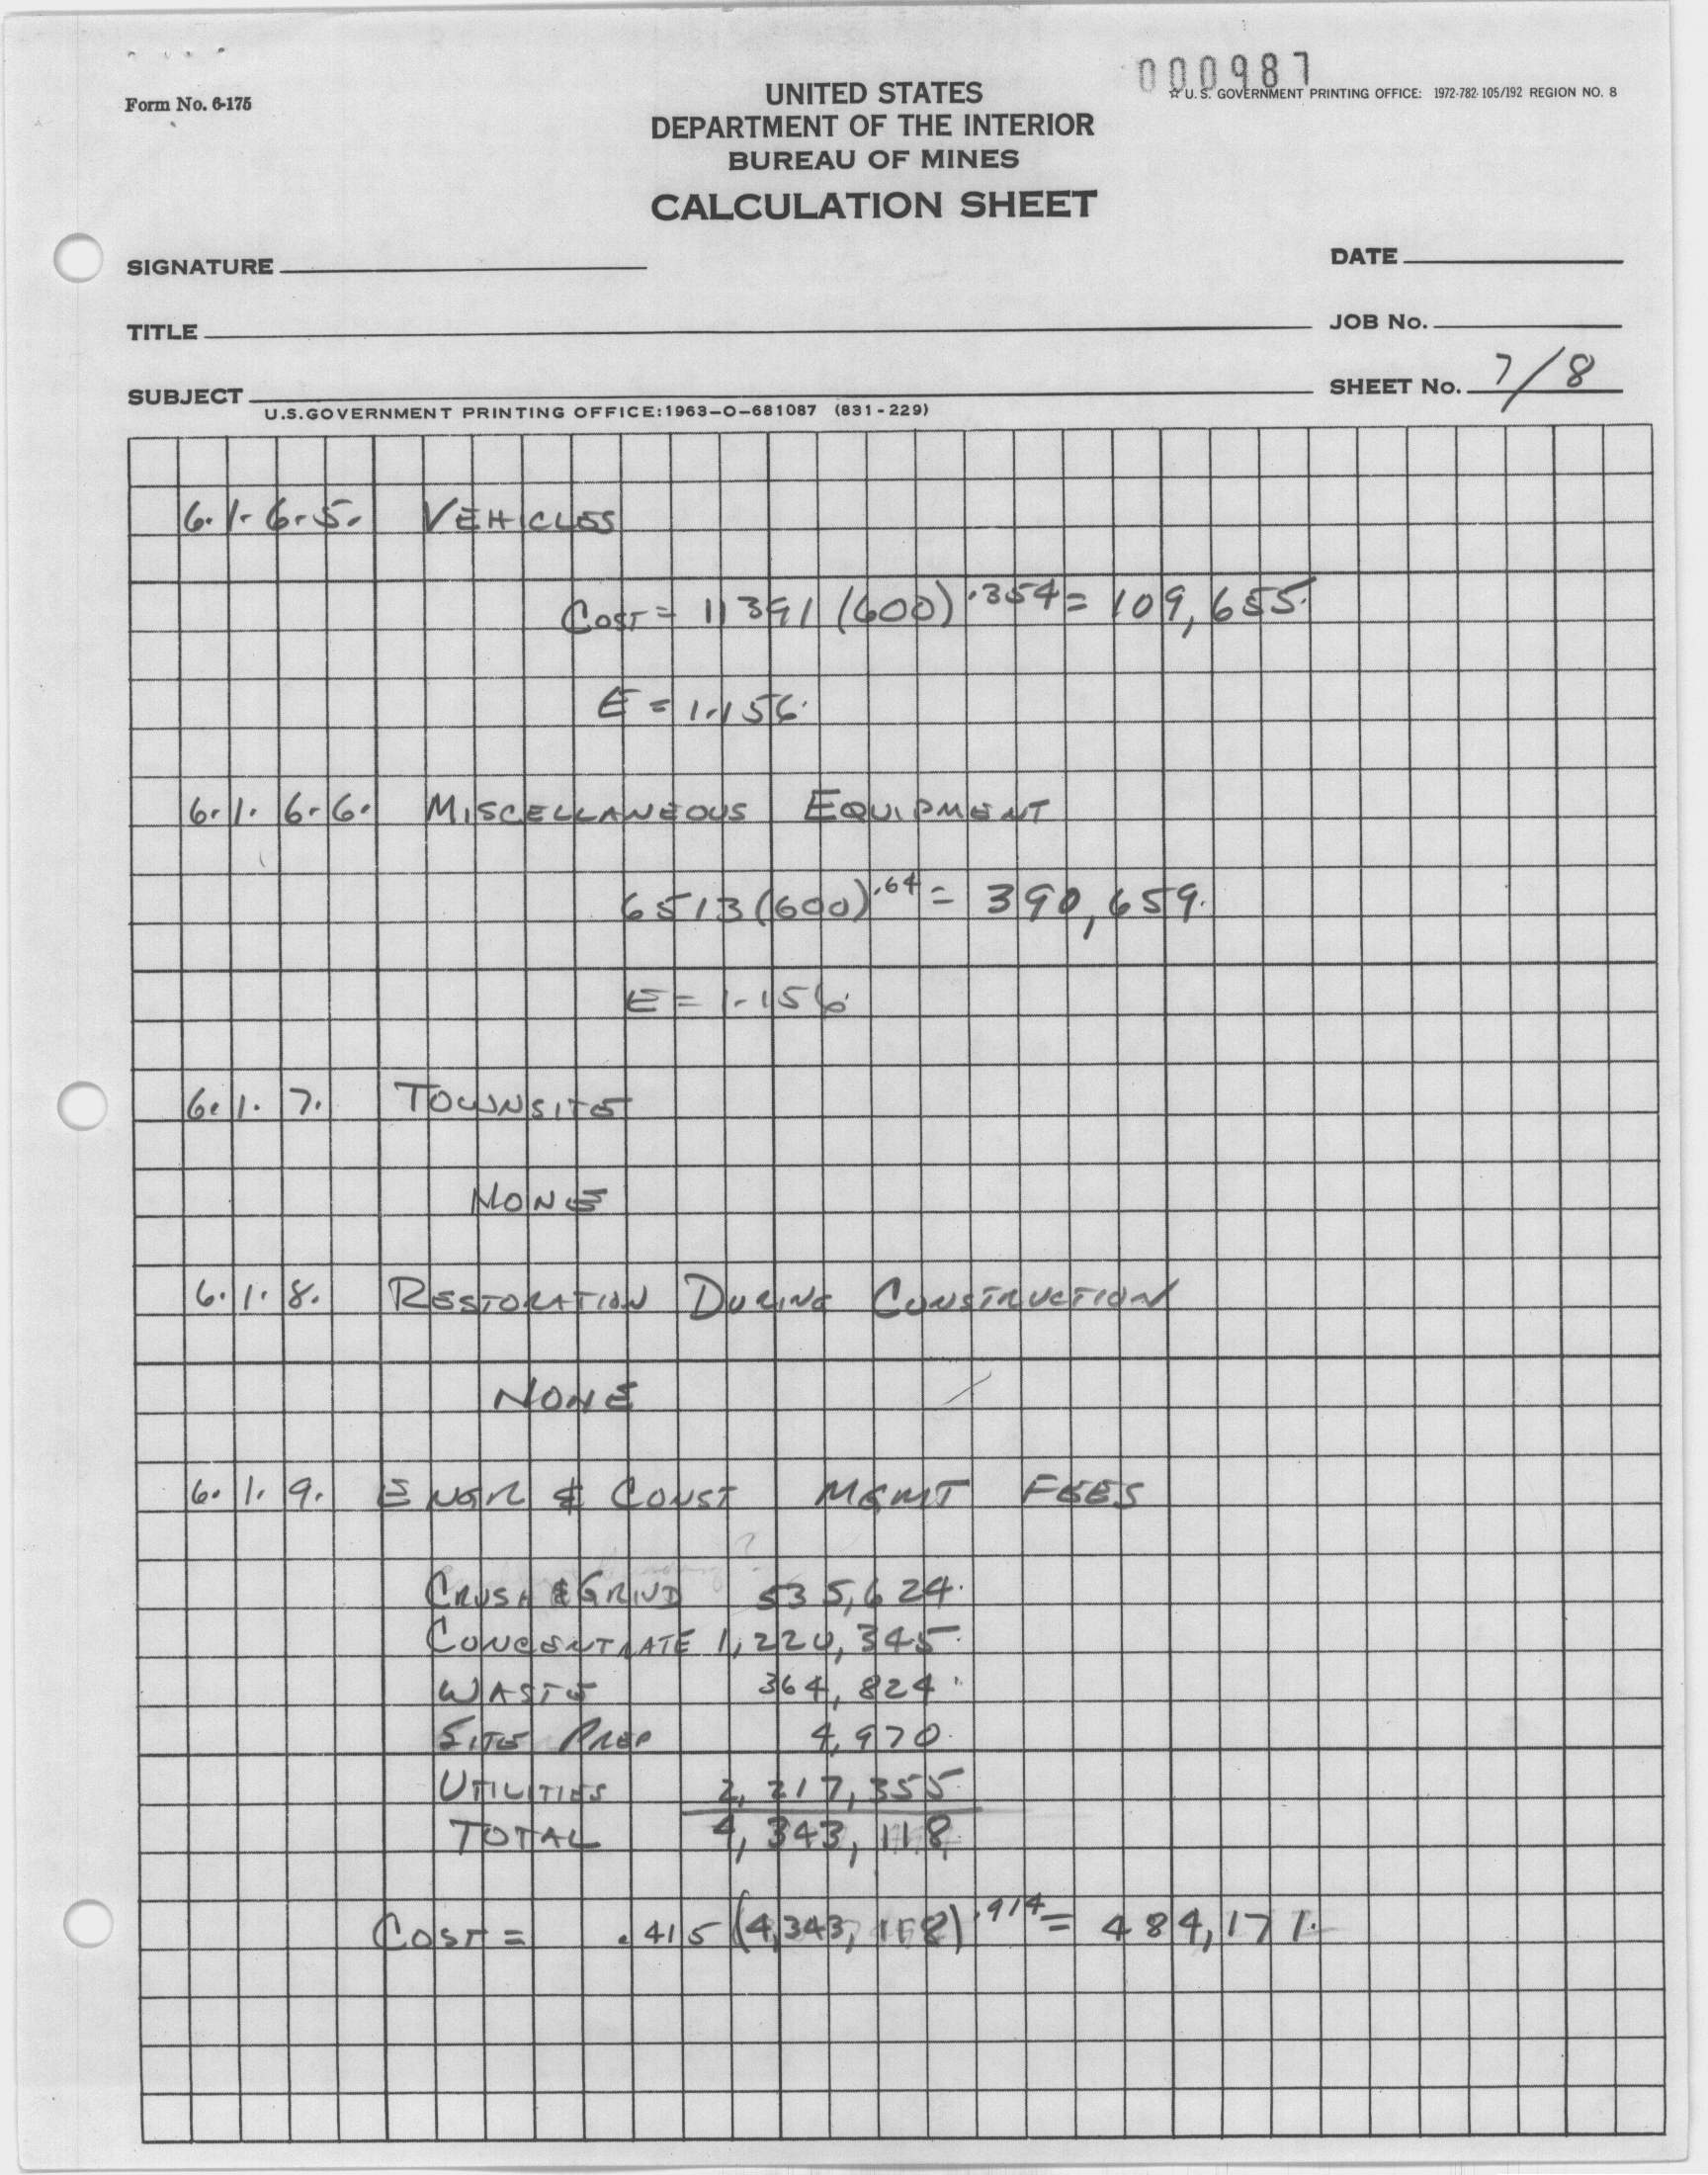 000987
Form No. 6-175
☆ U. S. GOVERNMENT PRINTING OFFICE: 1972-782-105/192 REGION NO. 8
UNITED STATES
DEPARTMENT OF THE INTERIOR
BUREAU OF MINES
CALCULATION SHEET
SIGNATURE
DATE
TITLE
JOB No.
SUBJECT
SHEET No. 7/8
U.S.GOVERNMENT PRINTING OFFICE:1963-O-681087 (831-229)
6.1.6.5. VEHICLES
COST = 11391 (600)^.354 = 109,655.
E = 1.156
6.1.6.6. MISCELLANEOUS EQUIPMENT
6513 (600)^.64 = 390,659.
E = 1.156
6.1.7. TOWNSITE
NONE
6.1.8. RESTORATION DURING CONSTRUCTION
NONE
6.1.9. ENGR & CONST MGMT FEES
CRUSH & GRIND 535,624.
CONCENTRATE 1,220,345.
WASTE 364,824.
SITE PREP 4,970.
UTILITIES 2,217,355
TOTAL 4,343,118
COST = .415 (4,343,118)^.914 = 484,171.